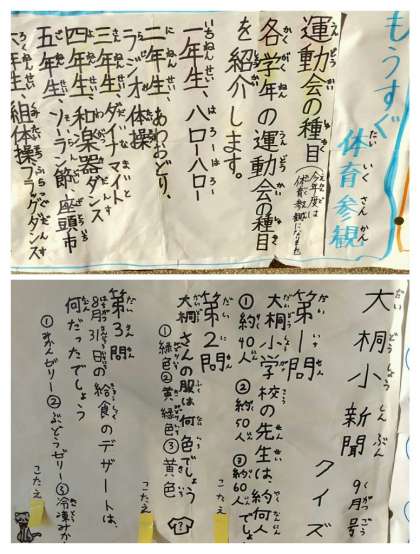 もうすぐ
体育参観
運動会の種目
今年度は
体育参観になります
各学年の運動会の種目
を紹介します。
一年生、ハローハロー
二年生、あわおどり、
ラジオ体操
三年生ダイナマイト
四年生、和楽器ダンス
五年生、ソーラン節、座頭市
六年生、組体操フラッグダンス
大桐小新聞9月号
クイズ
第1問
大桐小学校の先生は、約何人でしょう
①約40人 ②約50人 ③約60人
こたえ
第2問
大桐さんの服は何色でしょう
①緑色②黄緑色③黄色
こたえ
第3問
8月31日の給食のデザートは、
何だったでしょう
①りんごゼリー②ぶどうゼリー③冷凍みかん
こたえ